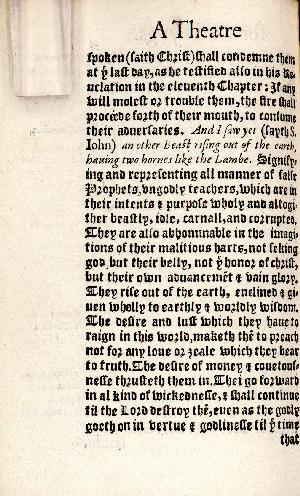 A Theatre
spoken (saith Christ) shall condemne them
at yͤ last day, as he testified also in his Re-
uelation in the eleuenth Chapter: If any
will molest or trouble them, the fire shall
procéede forth of their mouth, to consume
their aduersaries. And I saw yet (sayth S.
Iohn) an other Beast rising out of the earth,
hauing two hornes like the Lambe. Signify-
ing and representing all manner of false
Prophets, vngodly teachers, which are in
their intents & purpose wholy and altogi-
ther beastly, idle, carnall, and corrupted.
They are also abhominable in the imagi-
tions of their malitious harts, not seking
god, but their belly, not yͤ honor of christ,
but their own aduancemēt & vain glory.
They rise out of the earth, enclined & gi-
uen wholly to earthly & worldly wisdom.
The desire and lust which they haue to
raign in this world, maketh thē to preach
not for any loue or zeale which they bear
to truth. The desire of money & couetous-
nesse thrusteth them in. Thei go forward
in al kind of wickednesse, & shall continue
til the Lord destroy thē, euen as the godly
goeth on in vertue & godlinesse til yͤ time
that